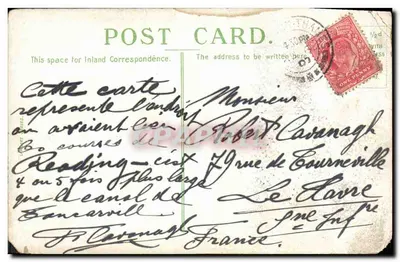 POST CARD.
This space for Inland Correspondence.
The address to be written here.
Cette carte
represente l'endroit
ou avaient lieu
les courses de
Reading - c'est
4 ou 5 fois plus large
que le canal de
Tancarville
R Cavanagh
Monsieur
Robert Cavanagh
79 rue de Tourneville
Le Havre
Sne Infre
France.